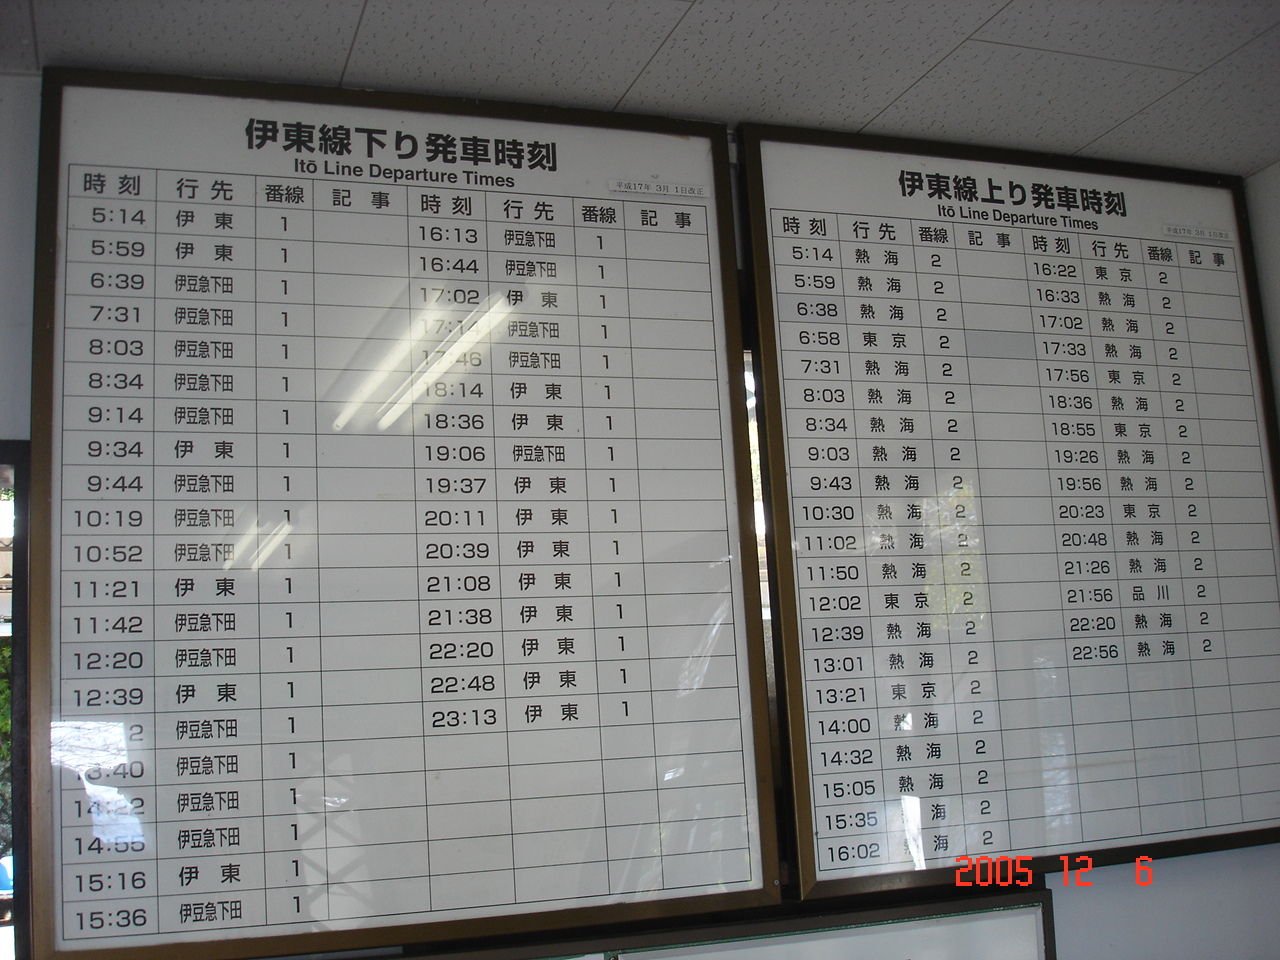 伊東線下り発車時刻
Itō Line Departure Times
平成17年 3月 1日改正
時刻 行先 番線 記事 時刻 行先 番線 記事
5:14 伊東 1 16:13 伊豆急下田 1
5:59 伊東 1 16:44 伊豆急下田 1
6:39 伊豆急下田 1 17:02 伊東 1
7:31 伊豆急下田 1 17:14 伊豆急下田 1
8:03 伊豆急下田 1 17:46 伊豆急下田 1
8:34 伊豆急下田 1 18:14 伊東 1
9:14 伊豆急下田 1 18:36 伊東 1
9:34 伊東 1 19:06 伊豆急下田 1
9:44 伊豆急下田 1 19:37 伊東 1
10:19 伊豆急下田 1 20:11 伊東 1
10:52 伊豆急下田 1 20:39 伊東 1
11:21 伊東 1 21:08 伊東 1
11:42 伊豆急下田 1 21:38 伊東 1
12:20 伊豆急下田 1 22:20 伊東 1
12:39 伊東 1 22:48 伊東 1
2 伊豆急下田 1 23:13 伊東 1
13:40 伊豆急下田 1
14:22 伊豆急下田 1
14:55 伊豆急下田 1
15:16 伊東 1
15:36 伊豆急下田 1
伊東線上り発車時刻
Itō Line Departure Times
平成17年 3月 1日改正
時刻 行先 番線 記事 時刻 行先 番線 記事
5:14 熱海 2 16:22 東京 2
5:59 熱海 2 16:33 熱海 2
6:38 熱海 2 17:02 熱海 2
6:58 東京 2 17:33 熱海 2
7:31 熱海 2 17:56 東京 2
8:03 熱海 2 18:36 熱海 2
8:34 熱海 2 18:55 東京 2
9:03 熱海 2 19:26 熱海 2
9:43 熱海 2 19:56 熱海 2
10:30 熱海 2 20:23 東京 2
11:02 熱海 2 20:48 熱海 2
11:50 熱海 2 21:26 熱海 2
12:02 東京 2 21:56 品川 2
12:39 熱海 2 22:20 熱海 2
13:01 熱海 2 22:56 熱海 2
13:21 東京 2
14:00 熱海 2
14:32 熱海 2
15:05 熱海 2
15:35 海 2
16:02 海 2
2005 12 6